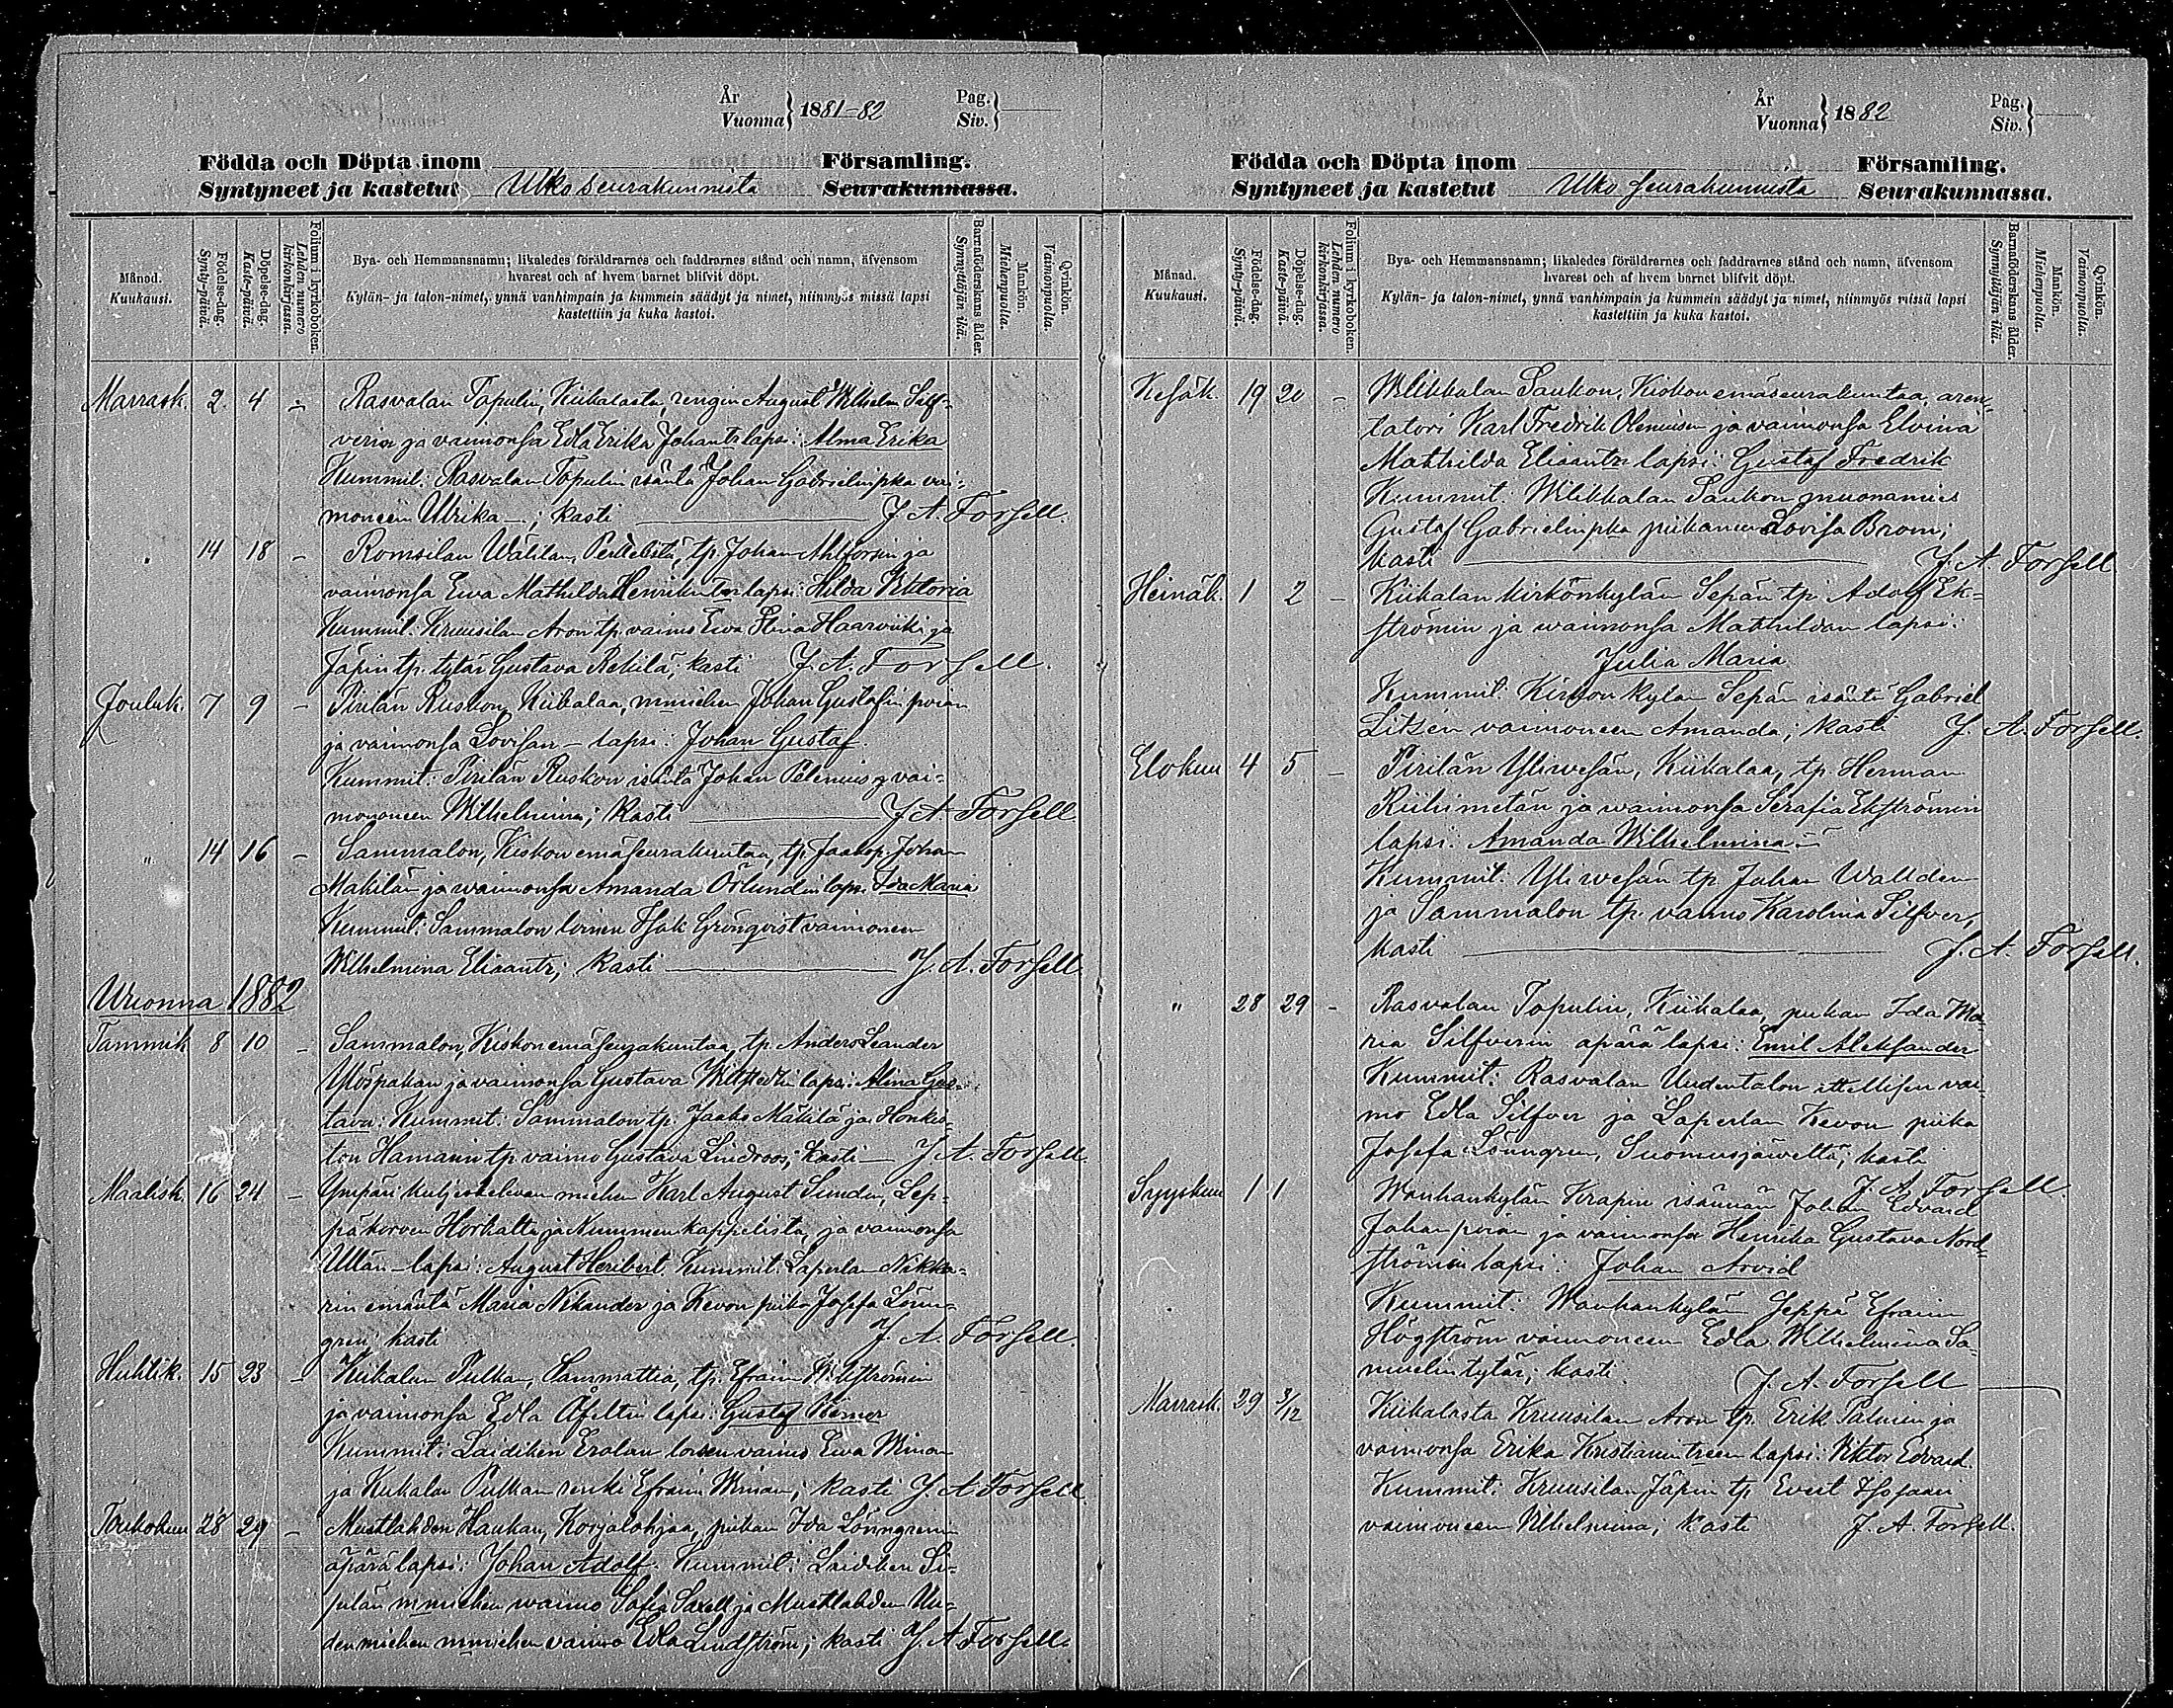 År
Vuonna } 1881-82
Pag.
Siv. }
Födda och Döpta inom Församling.
Syntyneet ja kastetut Ulko seurakunnista Seurakunnassa.
Månad.
Kuukausi.
Födelse-dag.
Synty-päivä.
Döpelse-dag.
Kaste-päivä.
Folium i kyrkoboken.
Lehden numero kirkonkirjassa.
Bya- och Hemmansnamn; likaledes föräldrarnes och faddrarnes stånd och namn, äfvensom
hvarest och af hvem barnet blifvit döpt.
Kylän- ja talon-nimet, ynnä vanhimpain ja kummein säädyt ja nimet, niinmyös missä lapsi
kastettiin ja kuka kastoi.
Barnaföderskans ålder.
Synnyttäjän ikä.
Mankön.
Miehenpuolia.
Qvinkön.
Vaimonpuolia.
Marrask. 2 4 – Rasvalan Topulin, Kiikalasta, rengin August Wilhelm Silf-
verin ja vaimonsa Edla Erika Johantr lapsi: Alma Erika
Kummit: Rasvalan Topulin isäntä Johan Gabrielinpka vai-
moneen Ulrika –; kasti J. A. Forsell.
" 14 18 – Romsilan Wälilan, Perttelistä, tp. Johan Ahlforsin ja
vaimonsa Ewa Mathilda Henrikintr lapsi: Hilda Viktoria
Kummit: Kruusilan Aron tp. vaimo Ewa Haarviiki ja
Jäpin tp. tytär Gustava Rekilä; kasti J. A. Forsell.
Jouluk. 7 9 – Pirilän Ruskon, Kiikalaa, mmiehen Johan Gustafin poian
ja vaimonsa Lovisan – lapsi: Johan Gustaf.
Kummit: Pirilän Ruskon isäntä Johan Pelenius ja vai-
moneen Wilhelmina; kasti J. A. Forsell.
" 14 16 – Sammalon, Kiskon emäseurakuntaa, tp. Jaakop Johan
Mäkilän ja waimonsa Amanda Örlundin lapsi: Ida Maria
Kummit: Sammalon loinen Isak Grönqvist vaimoneen
Wilhelmina Eliaantr; kasti J. A. Forsell.
Wuonna 1882
Tammik 8 10 – Sammalon, Kiskon emäseurakuntaa, tp. Anders Leander
Ylöspahan ja vaimonsa Gustava Willstedtin lapsi: Alina Gus-
tava: Kummit: Sammalon tp. Jaako Mäkilä ja Honki-
ton Hamarin tp vaimo Gustava Lindroos; kasti – J. A. Forsell.
Maalisk. 16 24 – Ympäri kuljeskelevan miehen Karl August Sundin, Lep-
päkorven Horkalta ja Nummenkappelista, ja vaimonsa
Ullan – lapsi: August Heribert. Kummit: Laperlan Nikka-
rin emäntä Maria Nikander ja Kevon piika Josefa Lönn-
gren; kasti J. A. Forsell.
Huhtik. 15 23 – Kiikalan Pulkan, Sammattia, tp. Efraim Wikströmin
ja vaimonsa Edla Åfeltin lapsi: Gustaf Werner
Kummit: Laidiken Erolan loisen vaimo Ewa Winan
ja Kiikalan Pulkan renki Efraim Winan; kasti J. A. Forsell.
Toukokuu 28 29 – Mustlahden Haukan, Korjalohjaa, piikan Ida Lönngrenin
äpärä lapsi: Johan Adolf. Kummit: Laidiken Si-
pilän mmiehen waimo Sofia Saxell ja Mustlahden Uu-
denmiehen mmiehen vaimo Edla Lindström; kasti J. A. Forsell.
År
Vuonna } 1882
Pag.
Siv. }
Födda och Döpta inom Församling.
Syntyneet ja kastetut Ulko seurakunnista Seurakunnassa.
Månad.
Kuukausi.
Födelse-dag.
Synty-päivä.
Döpelse-dag.
Kaste-päivä.
Folium i kyrkoboken.
Lehden numero kirkonkirjassa.
Bya- och Hemmansnamn; likaledes föräldrarnes och faddrarnes stånd och namn, äfvensom
hvarest och af hvem barnet blifvit döpt.
Kylän- ja talon-nimet, ynnä vanhimpain ja kummein säädyt ja nimet, niinmyös missä lapsi
kastettiin ja kuka kastoi.
Barnaföderskans ålder.
Synnyttäjän ikä.
Mankön.
Miehenpuolia.
Qvinkön.
Vaimonpuolia.
Kesäk. 19 20 – Wilikkalan Saukon, Kiskon emäseurakuntaa, aren-
tatori Karl Fredrik Oleniusen ja vaimonsa Elvina
Mathilda Eliaantr lapsi: Gustaf Fredrik
Kummit: Wilikkalan Saukon muonamies
Gustaf Gabrielinpka piikaneen Lovisa Brom;
kasti J. A. Forsell
Heinäk. 1 2 – Kiikalan kirkönkylän Sepän tp. Adolf Ek-
strömin ja waimonsa Mathildan lapsi:
Julia Maria
Kummit: Kirkonkylän Sepän isäntä Gabriel
Litzén vaimoneen Amanda; kasti J. A. Forsell.
Elokuu 4 5 – Pirilän Yliwesän, Kiikalaa, tp. Herman
Riihimetän ja waimonsa Serafia Ekströmin
lapsi: Amanda Wilhelmina –
Kummit: Yliwesän tp. Johan Wallden
ja Sammalon tp. vaimo Karolina Silfver;
kasti J. A. Forsell.
" 28 29 – Rasvalan Topulin, Kiikalaa, piikan Ida Ma-
ria Silfverin äpärä lapsi: Emil Aleksander
Kummit: Rasvalan Uudentalon itellisen vai-
mo Edla Silfver ja Laperlan Kevon piika
Josefa Lönngren, Suomusjärveltä; kasti
J. A. Forsell.
Syyskuu 1 1 Wanhankylän Krapin isännän Johan Edvard
Johan poian ja vaimonsa Henrika Gustava Nord-
strömin lapsi: Johan Arvid
Kummit: Wanhankylän Jeppä Efraim
Högström vaimoneen Edla Wilhelmina Sa-
muelintytär; kasti J. A. Forsell
Marrask. 29 3/12 Kiikalasta Kruusilan Aron tp. Erik Palmin ja
vaimonsa Erika Kristianintreen lapsi: Viktor Edvard.
Kummit: Kruusilan Jäpin tp. Evert Isojaan
vaimoneen Wilhelmina; kasti J. A. Forsell.